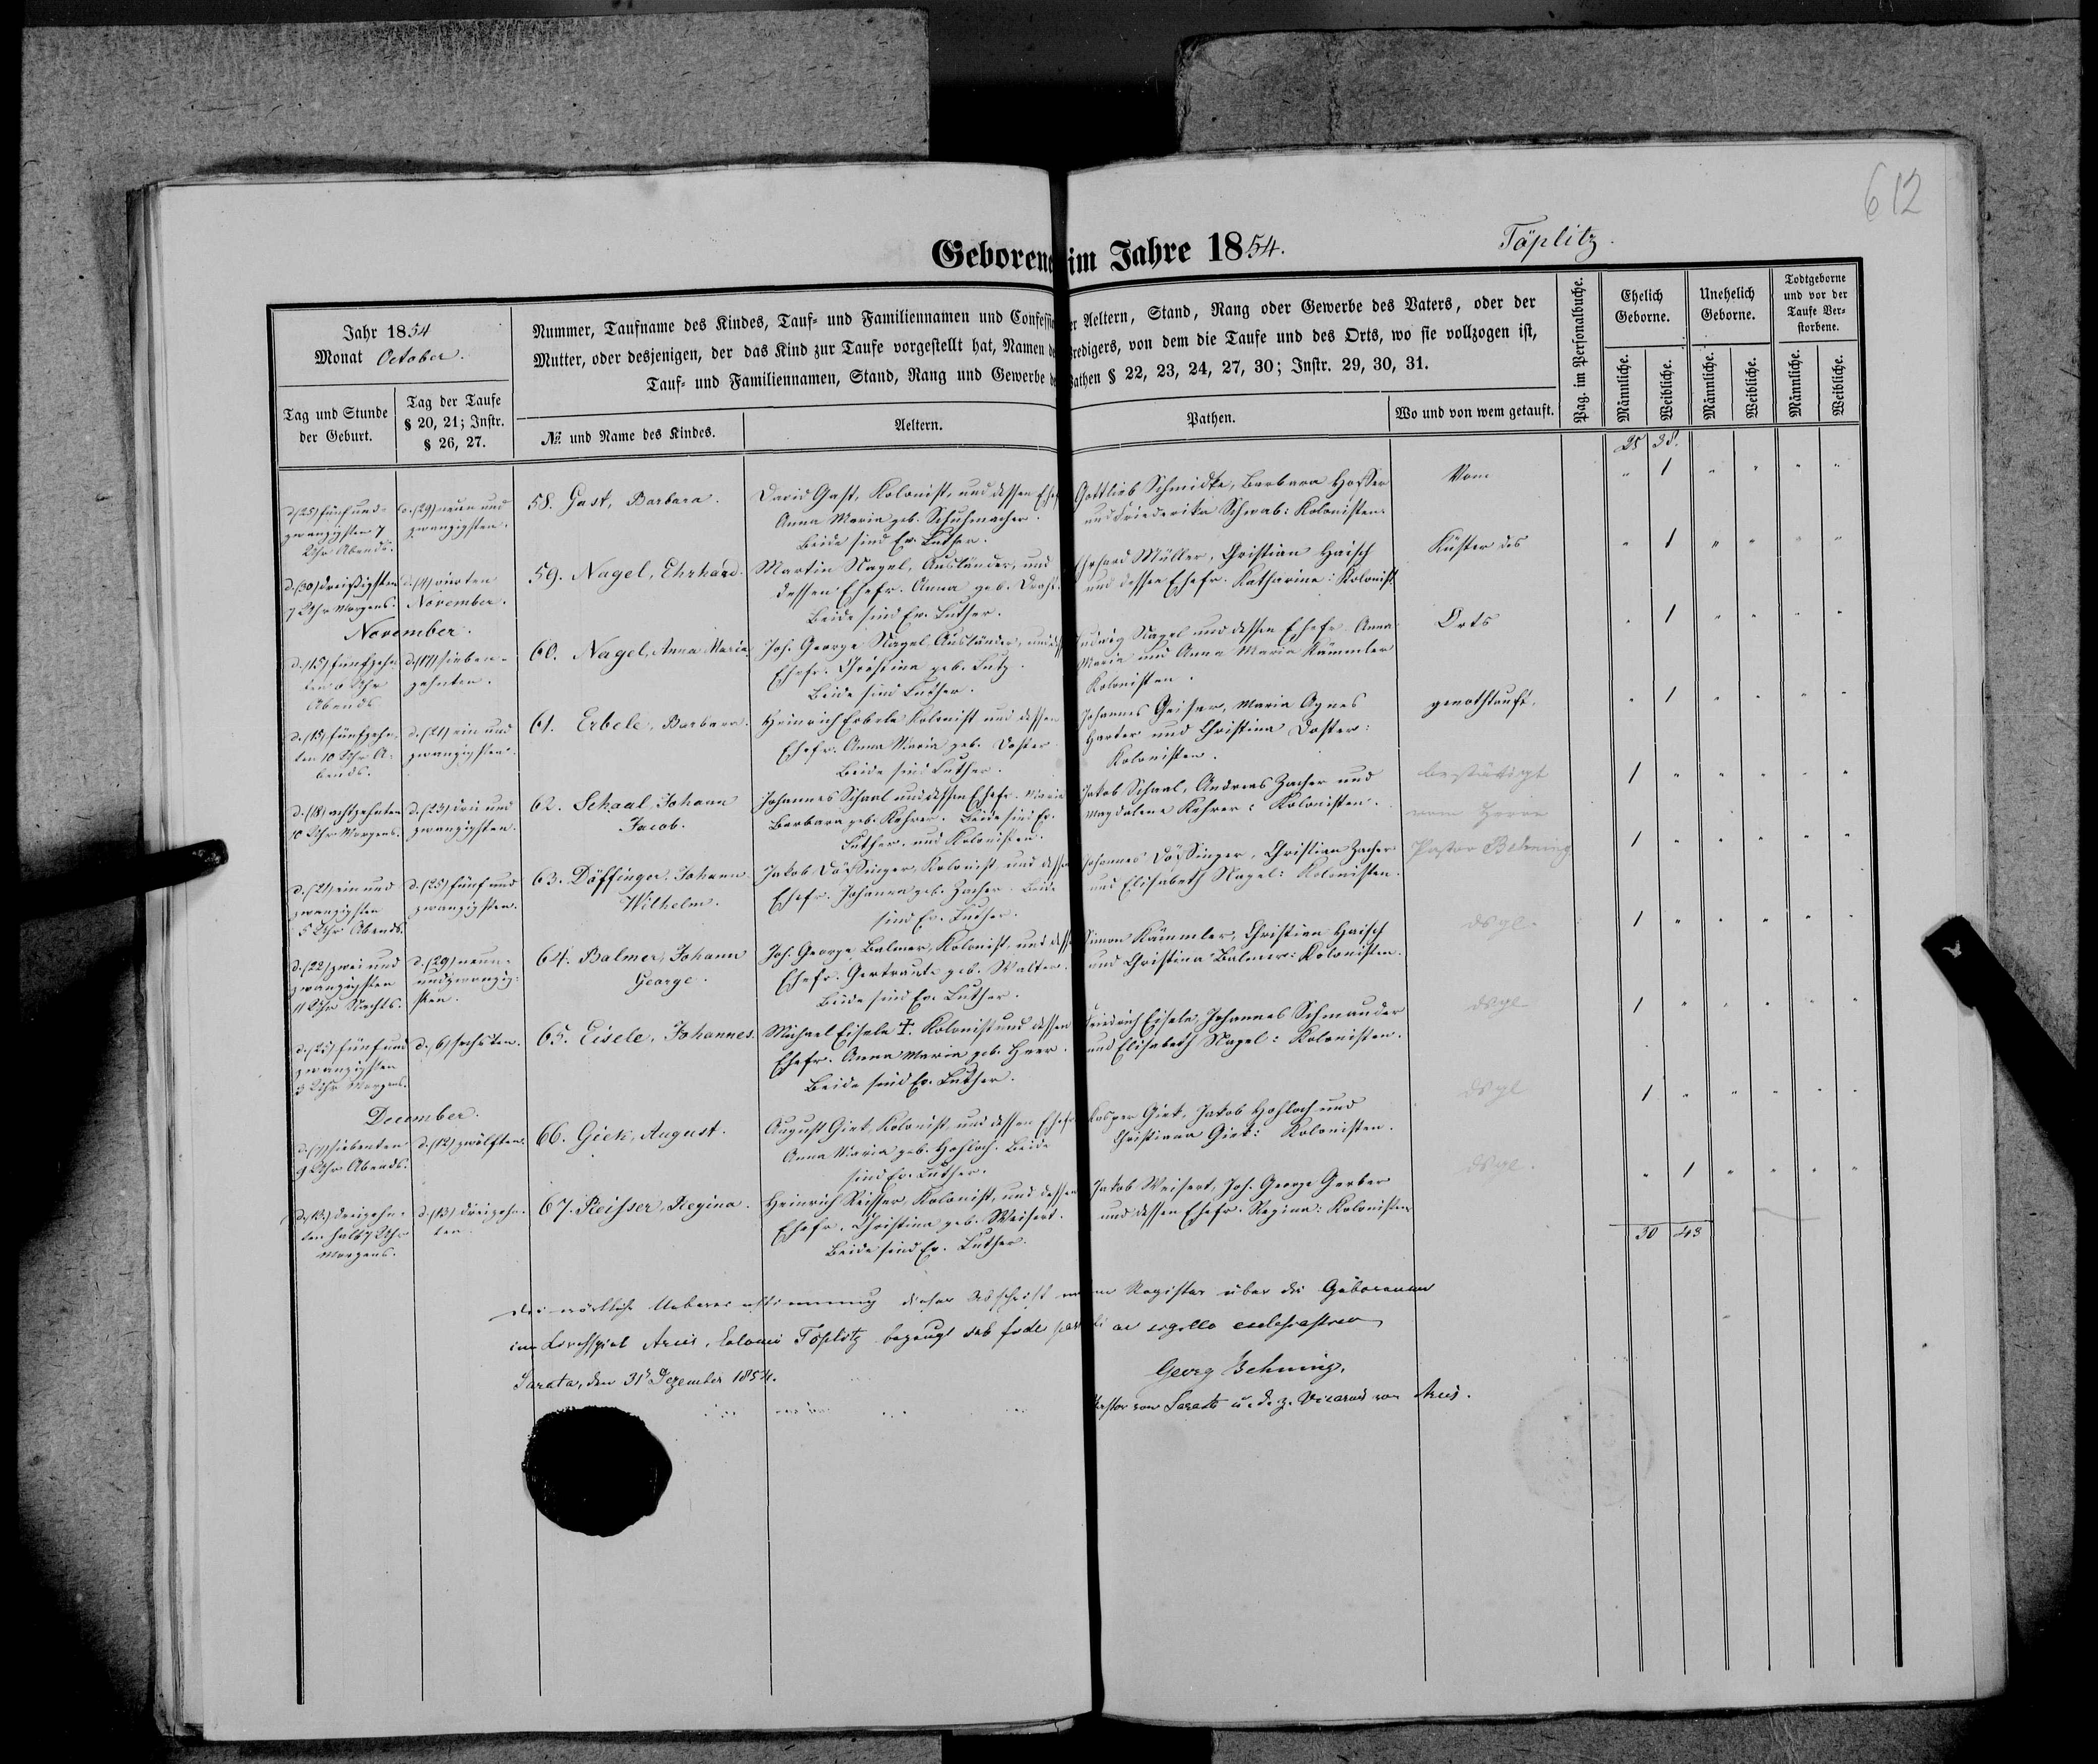 612
Geborene im Jahre 1854.
Töplitz.
Jahr 1854
Monat October.
Tag und Stunde der Geburt.
Tag der Taufe § 20, 21; Instr. § 26, 27.
Nummer, Taufname des Kindes, Tauf- und Familiennamen und Confession der Aeltern, Stand, Rang oder Gewerbe des Vaters, oder der
Mutter, oder desjenigen, der das Kind zur Taufe vorgestellt hat, Namen des Predigers, von dem die Taufe und des Orts, wo sie vollzogen ist,
Tauf- und Familiennamen, Stand, Rang und Gewerbe der Pathen § 22, 23, 24, 27, 30; Instr. 29, 30, 31.
№ und Name des Kindes.
Aeltern.
Pathen.
Wo und von wem getauft.
Pag. im Personalbuche.
Ehelich Geborne.
Unehelich Geborne.
Todtgeborne und vor der Taufe Verstorbene.
Männliche. Weibliche. Männliche. Weibliche. Männliche. Weibliche.
25 38.
d. (25) fünf und-
zwanzigsten 7
Uhr Abends.
d. (29) neun und
zwanzigsten.
58. Gast, Barbara.
David Gast, Kolonist, und dessen Ehefr.
Anna Maria geb. Schuhmacher.
Beide sind Ev. Luther.
Gottlieb Schmidke, Barbara Hoffer
und Friederika Schwab: Kolonisten.
Vom
" 1 " " " "
d. (30) dreißigsten
7 Uhr Morgens.
d. (4) vierten
November.
59. Nagel, Ehrhard.
Martin Nagel, Ausländer, und
dessen Ehefr. Anna geb.
Beide sind Ev. Luther.
Ehrhard Müller, Christian Haisch
und dessen Ehefr. Katharina: Kolonist.
Küster des
" 1 " " " "
November.
d. (15) fünfzehn-
ten 6 Uhr
Abends
d. (17) sieben-
zehnten.
60. Nagel, Anna Maria
Joh. George Nagel, Ausländer, und dess.
Ehefr. Christina geb. Lutz.
Beide sind Luther.
Ludwig Nagel und dessen Ehefr. Anna
Maria und Anna Maria Kämmler
Kolonisten.
Orts
" 1 " " " "
d. (15) fünfzehn-
ten 10 Uhr A-
bends.
d. (21) ein und
zwanzigsten.
61. Erbele, Barbara.
Heinrich Erbele Kolonist und dessen
Ehefr. Anna Maria geb. Doster.
Beide sind Luther.
Johannes Geiser, Maria Agnes
Harter und Christina Doster:
Kolonisten.
genothtauft.
" 1 " " " "
d. (18) achtzehnten
10 Uhr Morgens.
d. (23) drei und
zwanzigsten.
62. Schaal, Johann
Jacob.
Johannes Schaal und dessen Ehefr. Maria
Barbara geb. Kehrer. Beide sind Ev.
Luther. und Kolonisten.
Jakob Schaal, Andreas Zacher und
Magdalena Kehrer: Kolonisten.
bestätigt
vom Herrn
1 " " " " "
d. (21) ein und
zwanzigsten
5 Uhr Abends.
d. (25) fünf und
zwanzigsten.
63. Döffinger, Johann
Wilhelm.
Jakob Döffinger, Kolonist, und dessen
Ehefr. Johanna geb. Zacher. Beide
sind Ev. Luther.
Johannes Döffinger, Christian Zacher
und Elisabeth Nagel: Kolonisten.
Pastor Behning
1 " " " " "
d. (22) zwei und
zwanzigsten
11 Uhr Nachts.
d. (29) neun-
undzwanzig-
sten.
64. Balmer, Johann
George.
Joh. George Balmer, Kolonist, und dess.
Ehefr. Gertraute geb. Walter.
Beide sind Ev. Luther.
Simon Kämmler, Christian Haisch
und Christina Balmer: Kolonisten.
dsgl.
1 " " " " "
d. (25) fünf und
zwanzigsten
3 Uhr Morgens.
d. (6) sechsten.
65. Eisele, Johannes.
Michael Eisele †. Kolonist und dessen
Ehefr. Anna Maria geb. Heer.
Beide sind Ev. Luther.
Friedrich Eisele, Johannes Schmauder
und Elisabeth Nagel: Kolonisten.
dsgl
1 " " " " "
December.
d. (7) siebenten
9 Uhr Abends.
d. (12) zwölften.
66. Giek, August.
August Giek, Kolonist, und dessen Ehefr.
Anna Maria geb. Hohloch. Beide
sind Ev. Luther.
Kasper Giek, Jakob Hohloch und
Christiana Giek: Kolonisten.
dsgl
1 " " " " "
d. (13.) dreizehn-
ten halb 7 Uhr
Morgens.
d. (13) dreizehn-
ten.
67. Reisser, Regina.
Heinrich Reisser, Kolonist, und dessen
Ehefr. Christina geb. Weisert.
Beide sind Ev. Luther.
Jakob Weisert, Joh. George Gerber
und dessen Ehefr. Regina: Kolonisten
dsgl.
" 1 " " " "
30 43
Die wörtliche Uebereinstimmung dieser Abschrift mit dem Register über die Geborenen
im Kirchspiel Arcis, Colonie Töplitz bezeugt sub fide pastorali ac sigillo ecclesiastico
Sarata, den 31 Dezember 1854.
Georg Behning,
Pastor von Sarata u. d. z. Vicarius von Arcis.